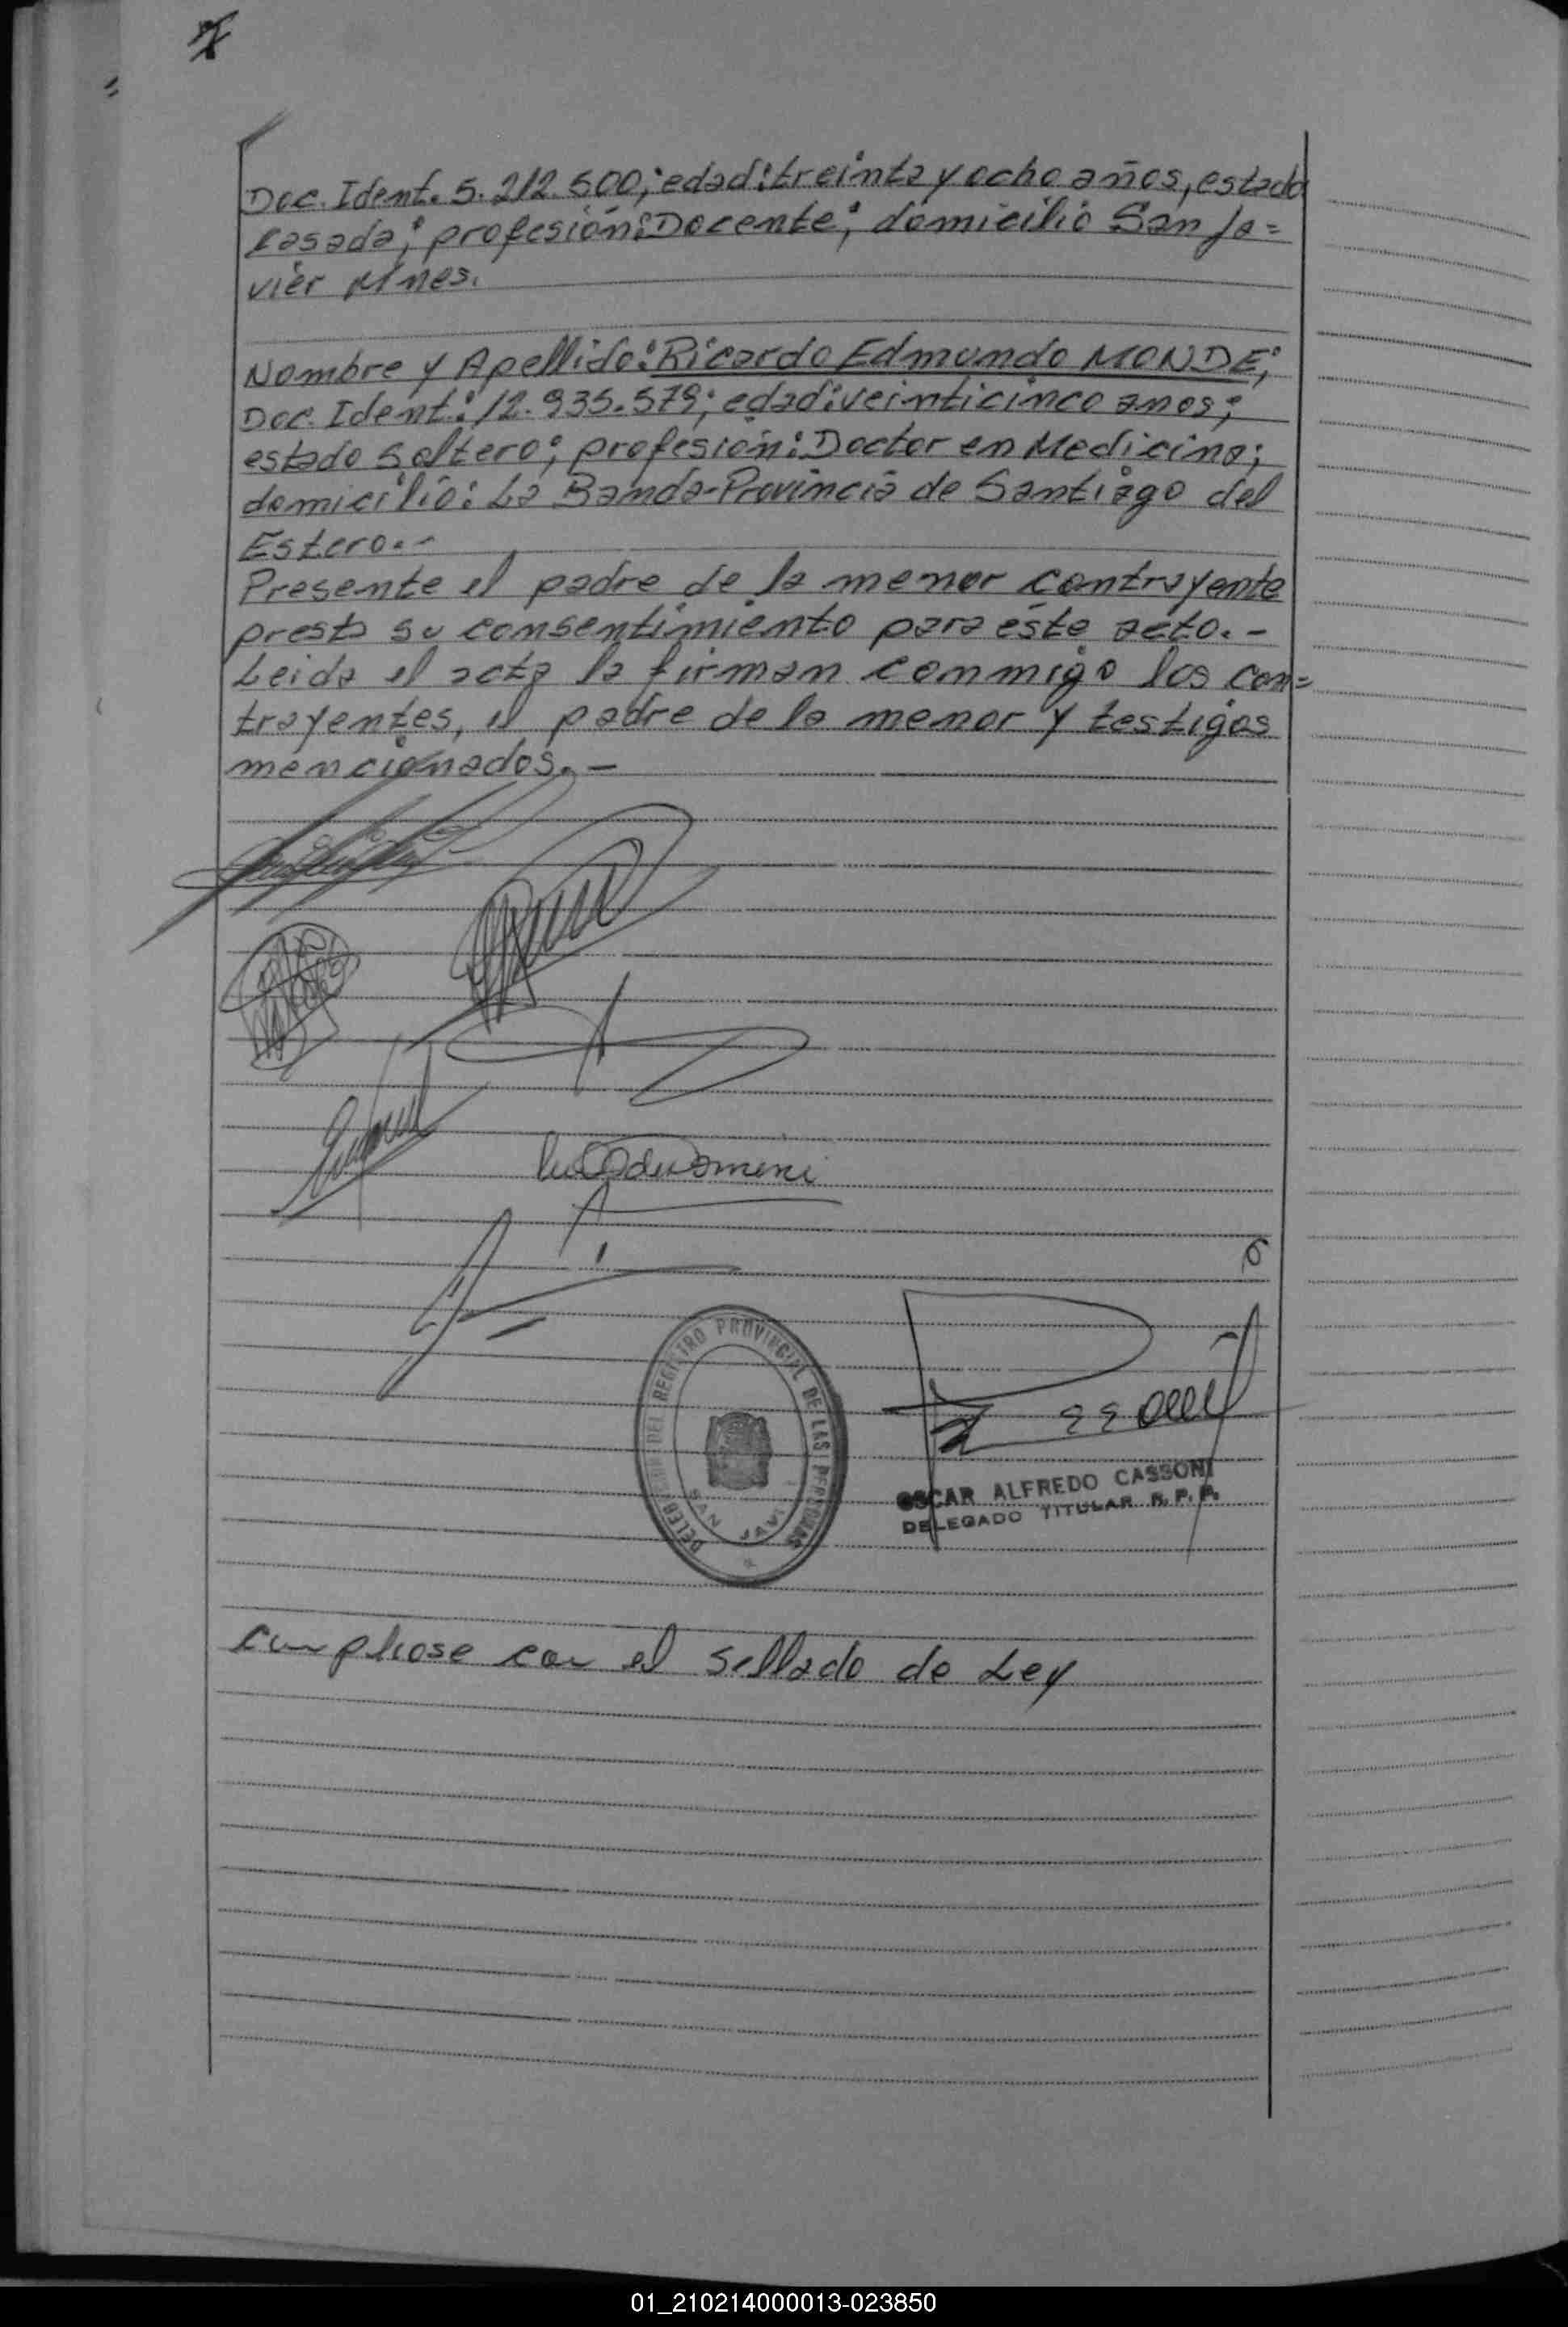 Doc. Ident. 5.212.500; edad: treinta y ocho años, estado
casada; profesión: Docente; domicilio San Ja=
vier Mnes.
Nombre y Apellido: Ricardo Edmundo MONDE;
Doc. Ident.: 12.935.579; edad: veinticinco anos;
estado Soltero; profesión: Doctor en Medicina;
domicilio: La Banda-Provincia de Santiago del
Estero.-
Presente el padre de la menor contrayente
presta su consentimiento para éste acto.-
Leida el acta la firman conmigo los con=
trayentes, el padre de la menor y testigos
mencionados.-
DELEGACION DEL REGISTRO PROVINCIAL DE LAS PERSONAS
SAN JAVI
OSCAR ALFREDO CASSONI
DELEGADO TITULAR R. P. P.
Cumpliose con el sellado de Ley
01_210214000013-023850